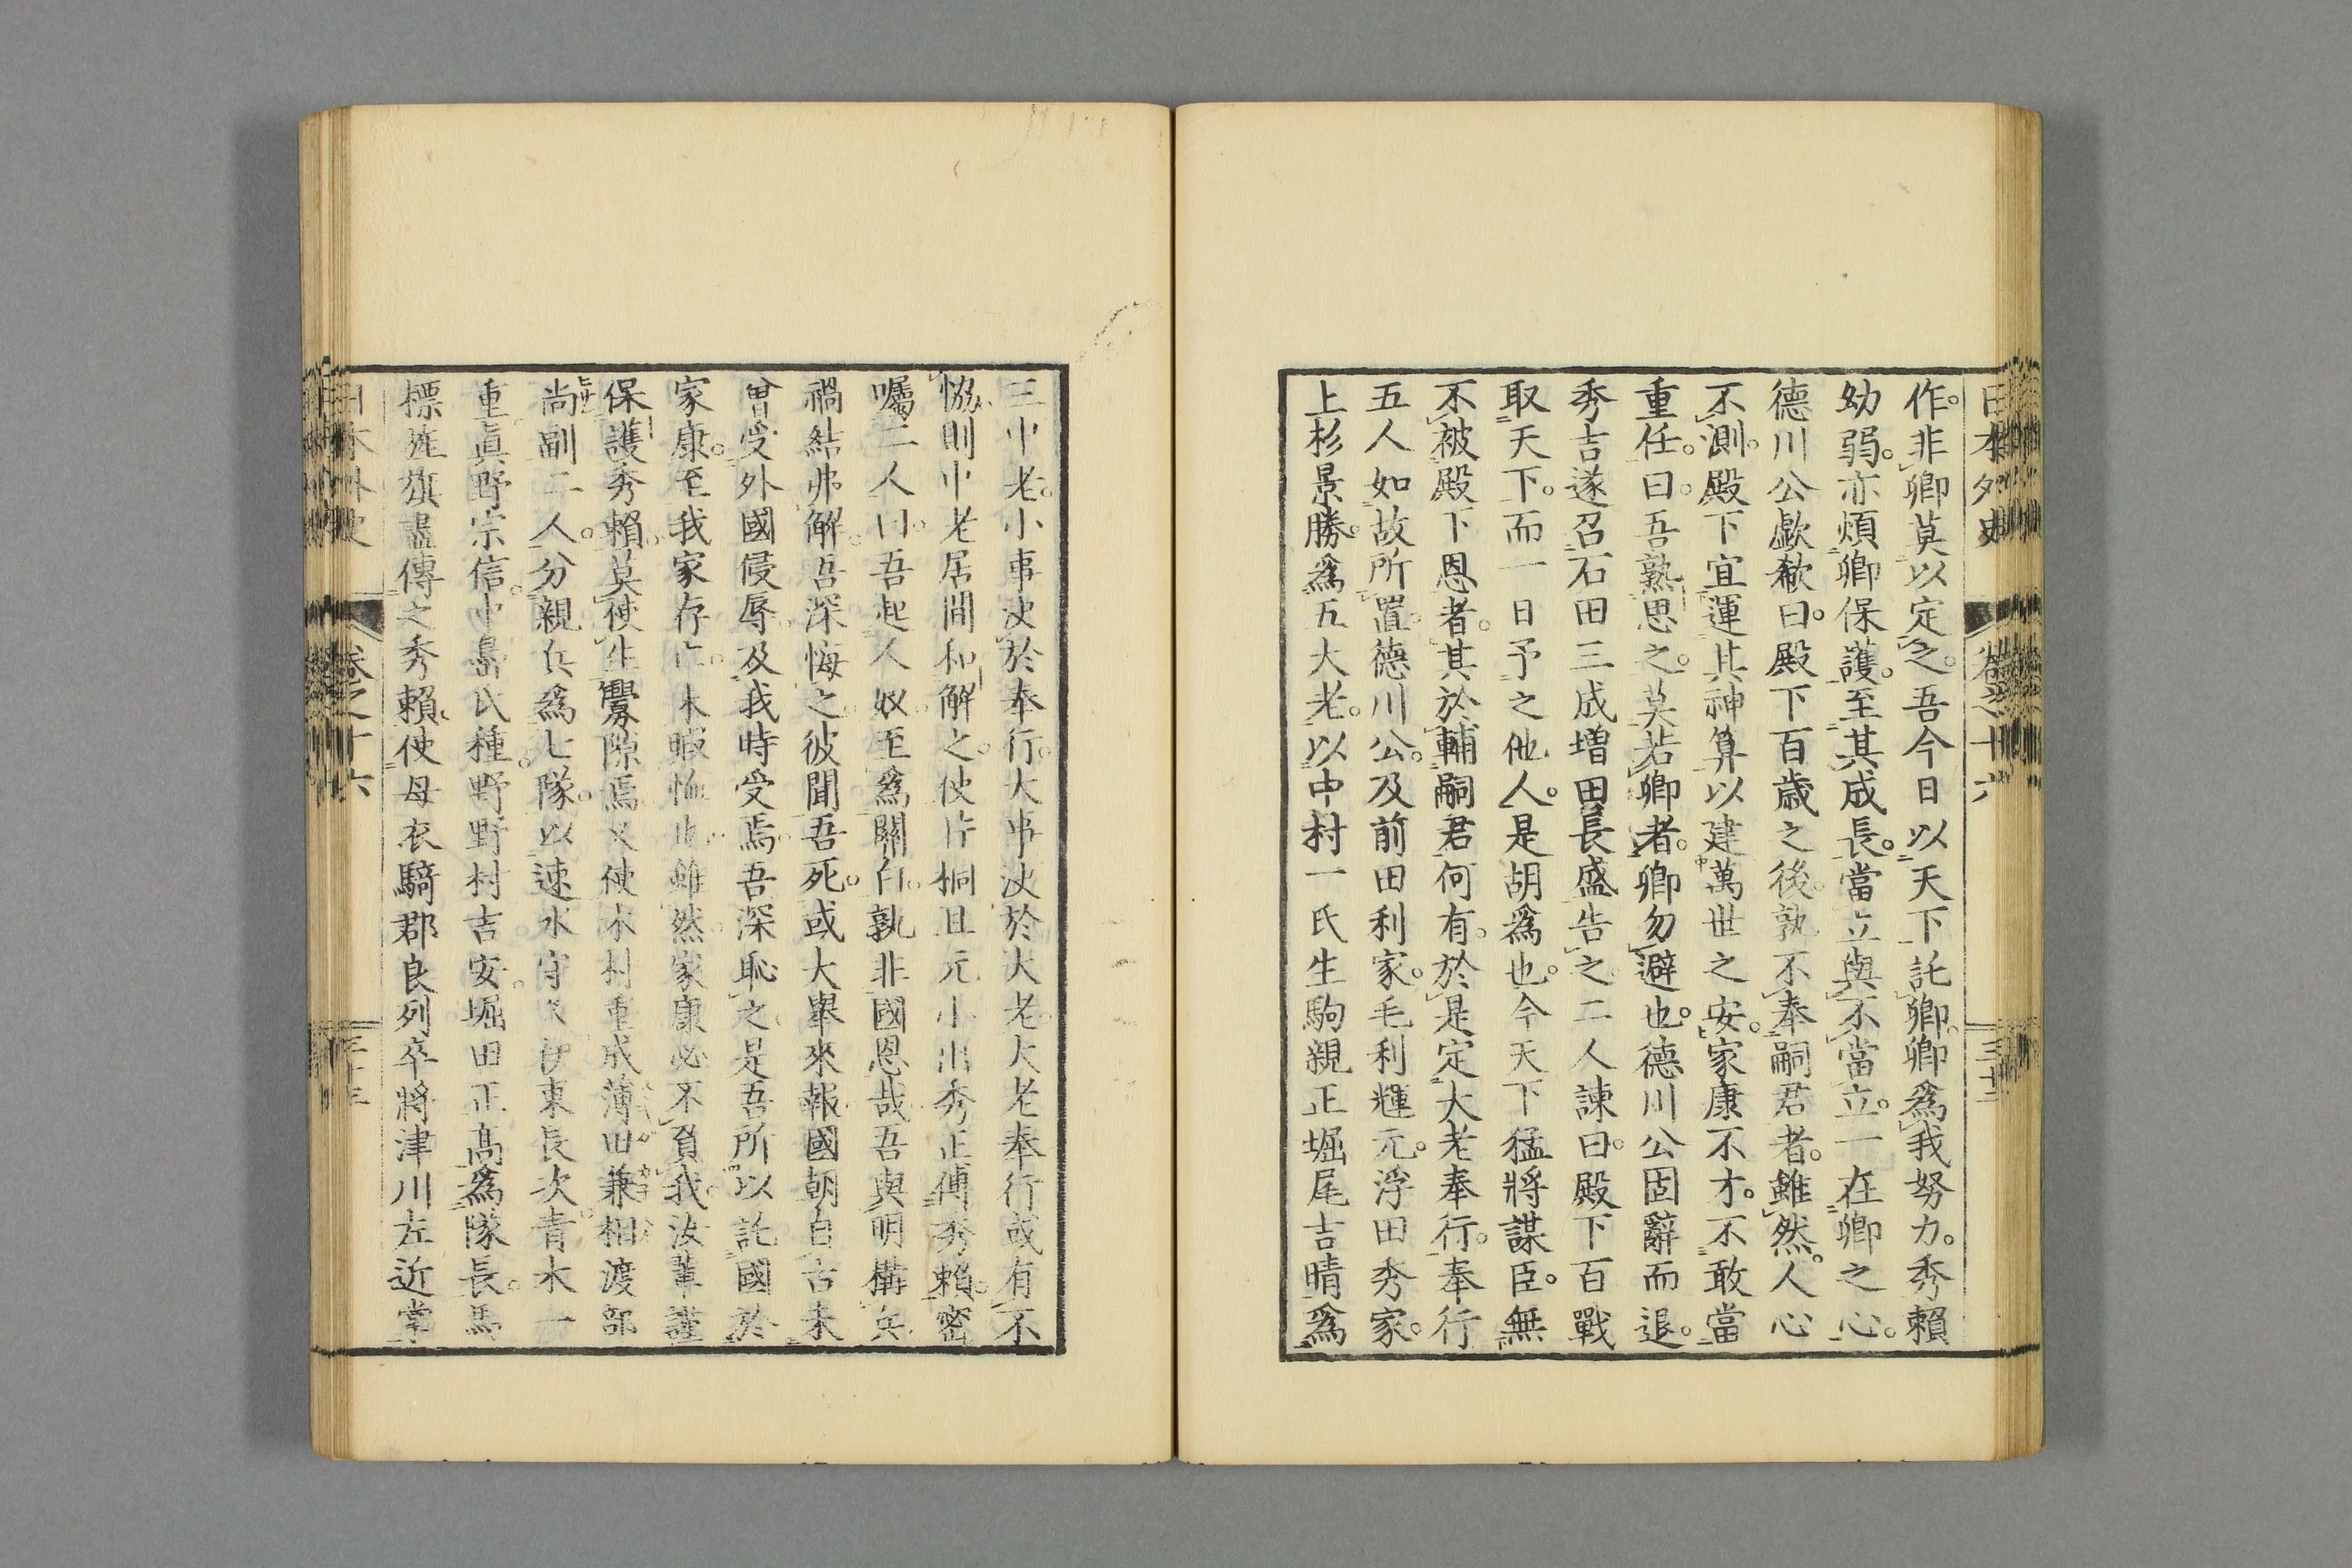 日本外史 卷之十六 三十二
作。非卿莫以定之。吾今日以天下託卿。卿爲我努力。秀賴
幼弱。亦煩卿保護。至其成長。當立與不當立。一在卿之心。
德川公歔欷曰。殿下百歲之後。孰不奉嗣君者。雖然。人心
不測。殿下宜運其神算以建萬世之安。家康不才。不敢當
重任。曰。吾熟思之。莫若卿者。卿勿避也。德川公固辭而退。
秀吉遂召石田三成增田長盛告之。二人諫曰。殿下百戰
取天下。而一日予之他人。是胡爲也。今天下猛將謀臣。無
不被殿下恩者。其於輔嗣君何有。於是定大老奉行。奉行
五人如故所置。德川公。及前田利家。毛利輝元。浮田秀家。
上杉景勝。爲五大老。以中村一氏生駒親正堀尾吉晴爲
三中老。小事決於奉行。大事決於大老。大老奉行或有不
協。則中老居間和解之。使片桐且元小出秀正傅秀賴。密
囑二人曰。吾起人奴。至爲關白。孰非國恩哉。吾與明構兵。
禍結弗解。吾深悔之。彼聞吾死。或大擧來報。國朝自古未
曾受外國侵辱。及我時受焉。吾深恥之。是吾所以託國於
家康。至我家存亡。未暇恤也。雖然。家康必不負我。汝輩謹
保護秀賴。莫使生釁隙焉。又使木村重成薄田兼相渡部
尚副二人。分親兵爲七隊。以速水守久。伊東長次。青木一
重。眞野宗信。中島氏種。野野村吉安。堀田正高爲隊長。馬
標旌旗盡傳之秀賴。使母衣騎郡良列卒將津川左近掌
日本外史 卷之十六